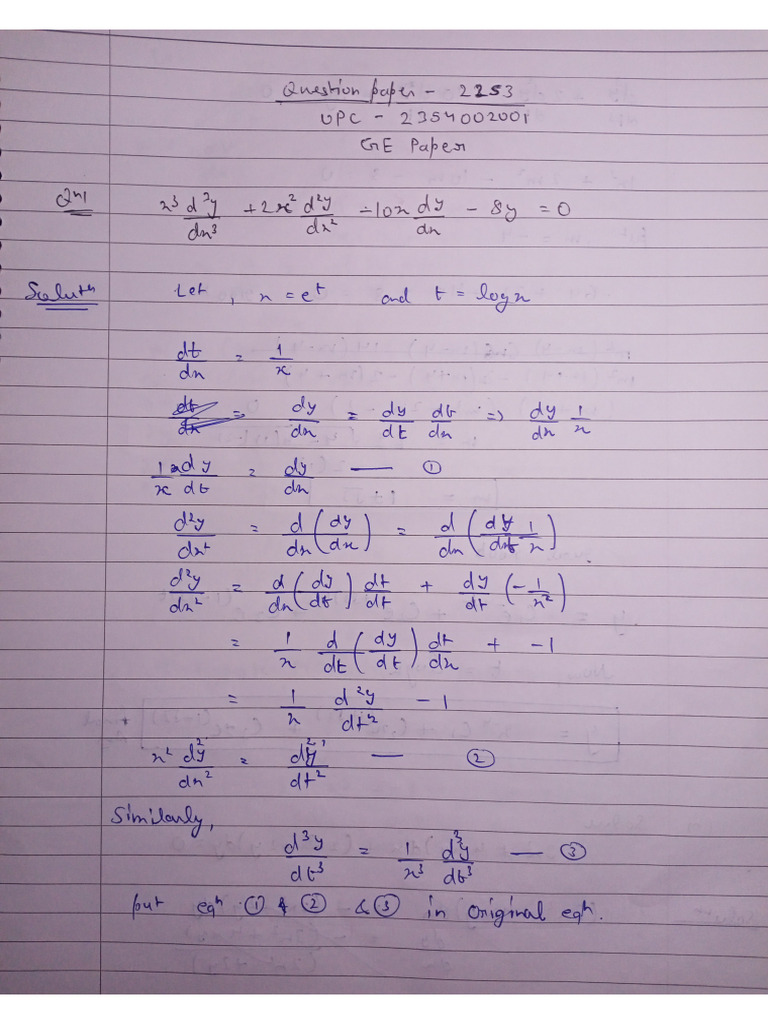 Question paper - 2253
UPC - 2354002001
GE Paper
Qn1 x³ d³y/dx³ + 2x² d²y/dx² - 10x dy/dx - 8y = 0
Solutn Let, x = e^t and t = log x
dt/dx = 1/x
dy/dx = dy/dt dt/dx => dy/dx 1/x
1/x dy/dt = dy/dx — ①
d²y/dx² = d/dx (dy/dx) = d/dx (dy/dt 1/x)
d²y/dx² = d/dx (dy/dt) dt/dt + dy/dt (-1/x²)
= 1/x d/dt (dy/dt) dt/dx + -1
= 1/x d²y/dt² - 1
x² d²y/dx² = d²y/dt² — ②
Similarly,
d³y/dt³ = 1/x³ d³y/dt³ — ③
put eqn ① & ② & ③ in original eqn.